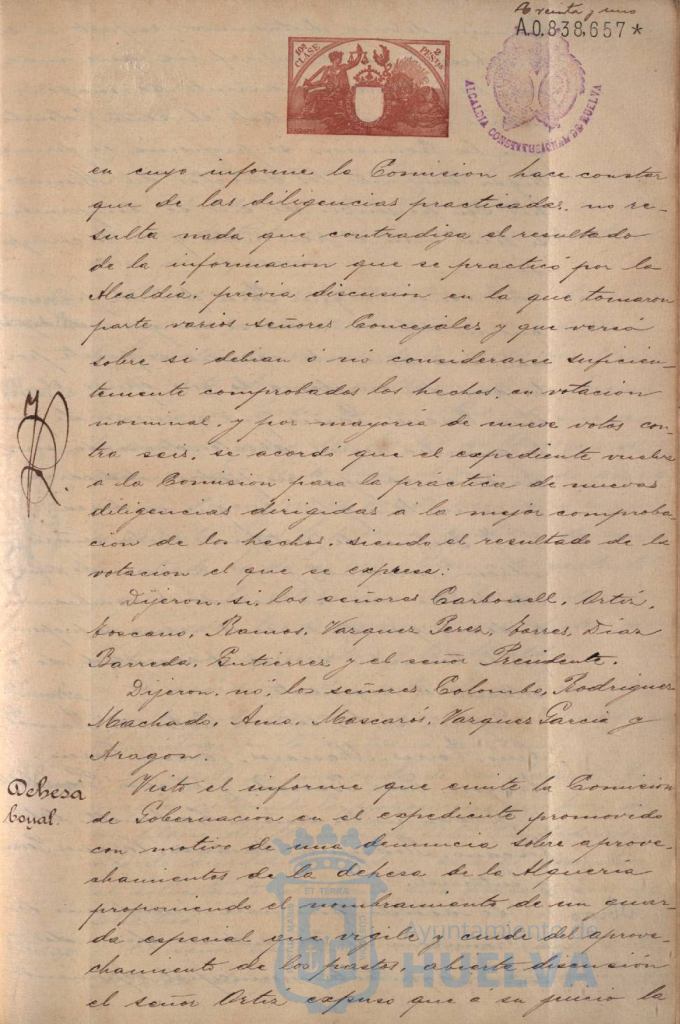 A treinta y uno
A0.838,657*
10ª CLASE
2 PESETAS
ALCALDIA CONSTITUCIONAL DE HUELVA
en cuyo informe la Comision hace constar
que de las diligencias practicadas, no re-
sulta nada que contradiga el resultado
de la informacion que se practicó por la
Alcaldía, previa discusion en la que tomaron
parte varios señores Concejales y que versó
sobre si debian ó nó considerarse suficien-
temente comprobados los hechos, en votacion
nominal, y por mayoria de nueve votos con-
tra seis, se acordó que el expediente vuelva
á la Comision para la práctica de nuevas
diligencias dirigidas á la mejor comproba-
cion de los hechos, siendo el resultado de la
votacion el que se expresa:
Dijeron, si, los señores Carbonell, Ortiz,
Toscano, Ramos, Vazquez Perez, Torres, Diaz
Barreda, Gutierrez y el señor Presidente.
Dijeron, nó, los señores Colombo, Rodriguez
Machado, Amo, Mascarós, Vazquez Garcia y
Aragon.
Dehesa
boyal.
Visto el informe que emite la Comision
de Gobernacion en el expediente promovido
con motivo de una denuncia sobre aprove-
chamientos de la dehesa de la Alquería
proponiendo el nombramiento de un guar-
da especial que vigile y cuide del aprove-
chamiento de los pastos, abierta discusión
el señor Ortiz expuso que á su juicio la
Ayuntamiento de
HUELVA